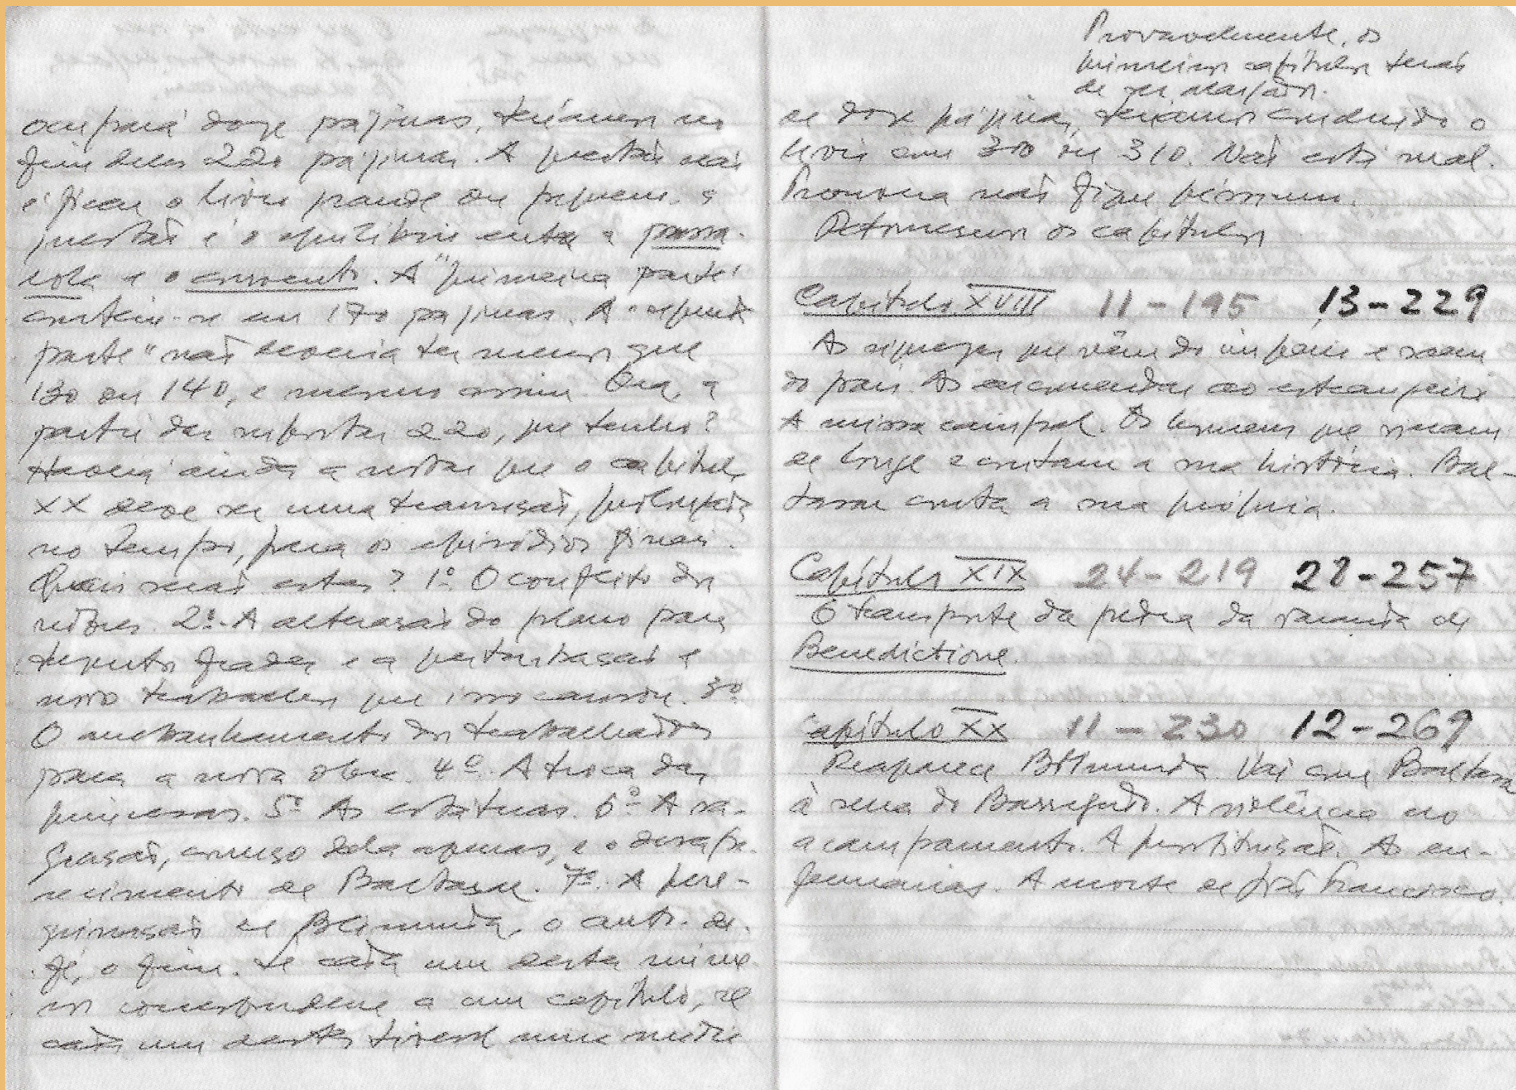 ocupará doze páginas, teríamos no
fim delas 220 páginas. A questão não
é ficar o livro grande ou pequeno. a
questão é o equilíbrio entre a passa-
rola e o convento. A "primeira parte"
contém-se em 170 páginas. A "segunda
parte" não deveria ter menos que
130 ou 140, e mesmo assim. Ora, a
partir das supostas 220, que tenho?
Haverá ainda a notar que o capítulo
XX deve ser uma transição, prolongada
no tempo, para os episódios finais.
Quais serão estes? 1º O conflito dos
2º A alteração do plano para
trezentos frades e a perturbação e
novo trabalho que isso causou. 3º
O arrebanhamento dos trabalhadores
para a nova obra. 4º A troca das
princesas. 5º As estátuas. 6º A sa-
gração, começo dela apenas, e o desapa-
recimento de Baltasar. 7º A pere-
grinação de Blimunda, o auto-de-
fé, o fim. Se cada um destes núme-
ros correspondesse a um capítulo, se
cada um destes tivesse uma média
Provavelmente, os
primeiros capítulos terão
de ser
de doze páginas, teríamos concluído o
livro em 300 ou 310. Não está mal.
Provera não fique péssimo.
Retomemos os capítulos
Capítulo XVIII 11-195 13-229
As riquezas que vêm do império e saem
do país. As encomendas ao estrangeiro
A missa campal. Os homens que vieram
de longe e contam a sua história. Bal-
tasar conta a sua própria.
Capítulo XIX 24-219 28-257
O transporte da pedra da varanda de
Benedictione.
Capítulo XX 11-230 12-269
Reaparece Blimunda. Vai com Baltasar
à serra do Barregudo. A violência no
acampamento. A prostituição. As en-
fermarias. A morte de João Francisco.